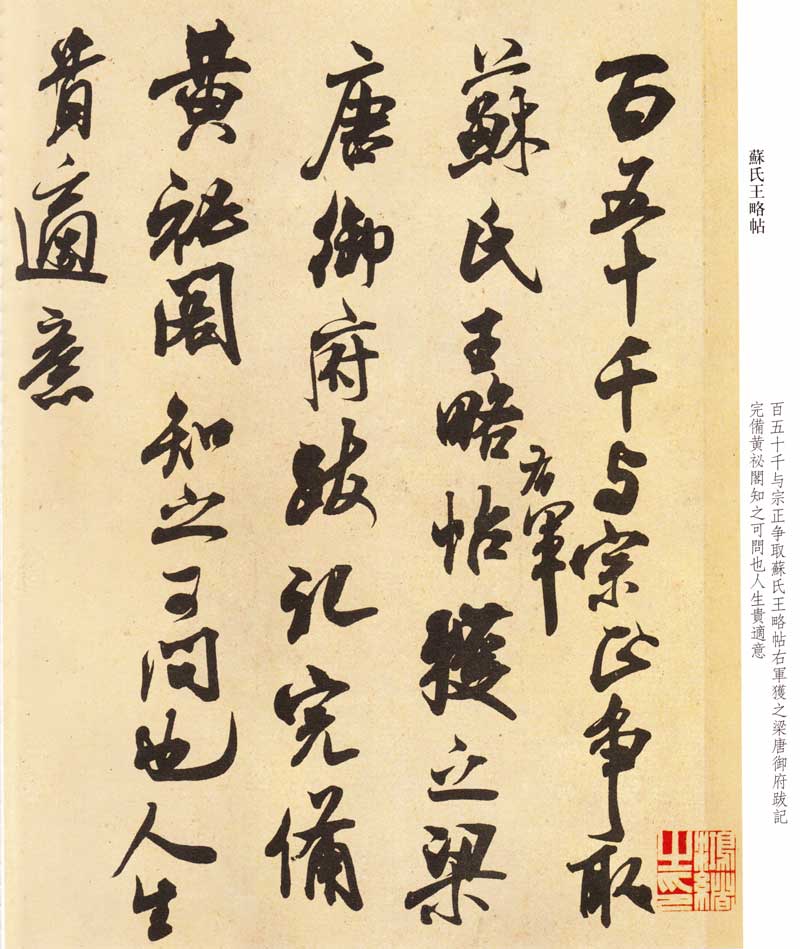 蘇氏王略帖
百五十千与宗正争取蘇氏王略帖右軍獲之梁唐御府跋記
完備黄祕閣知之可問也人生貴適意
百五十千与宗正争取
蘇氏王略帖獲之梁
右軍
唐御府跋記完備
黄祕閣知之可問也人生
貴適意